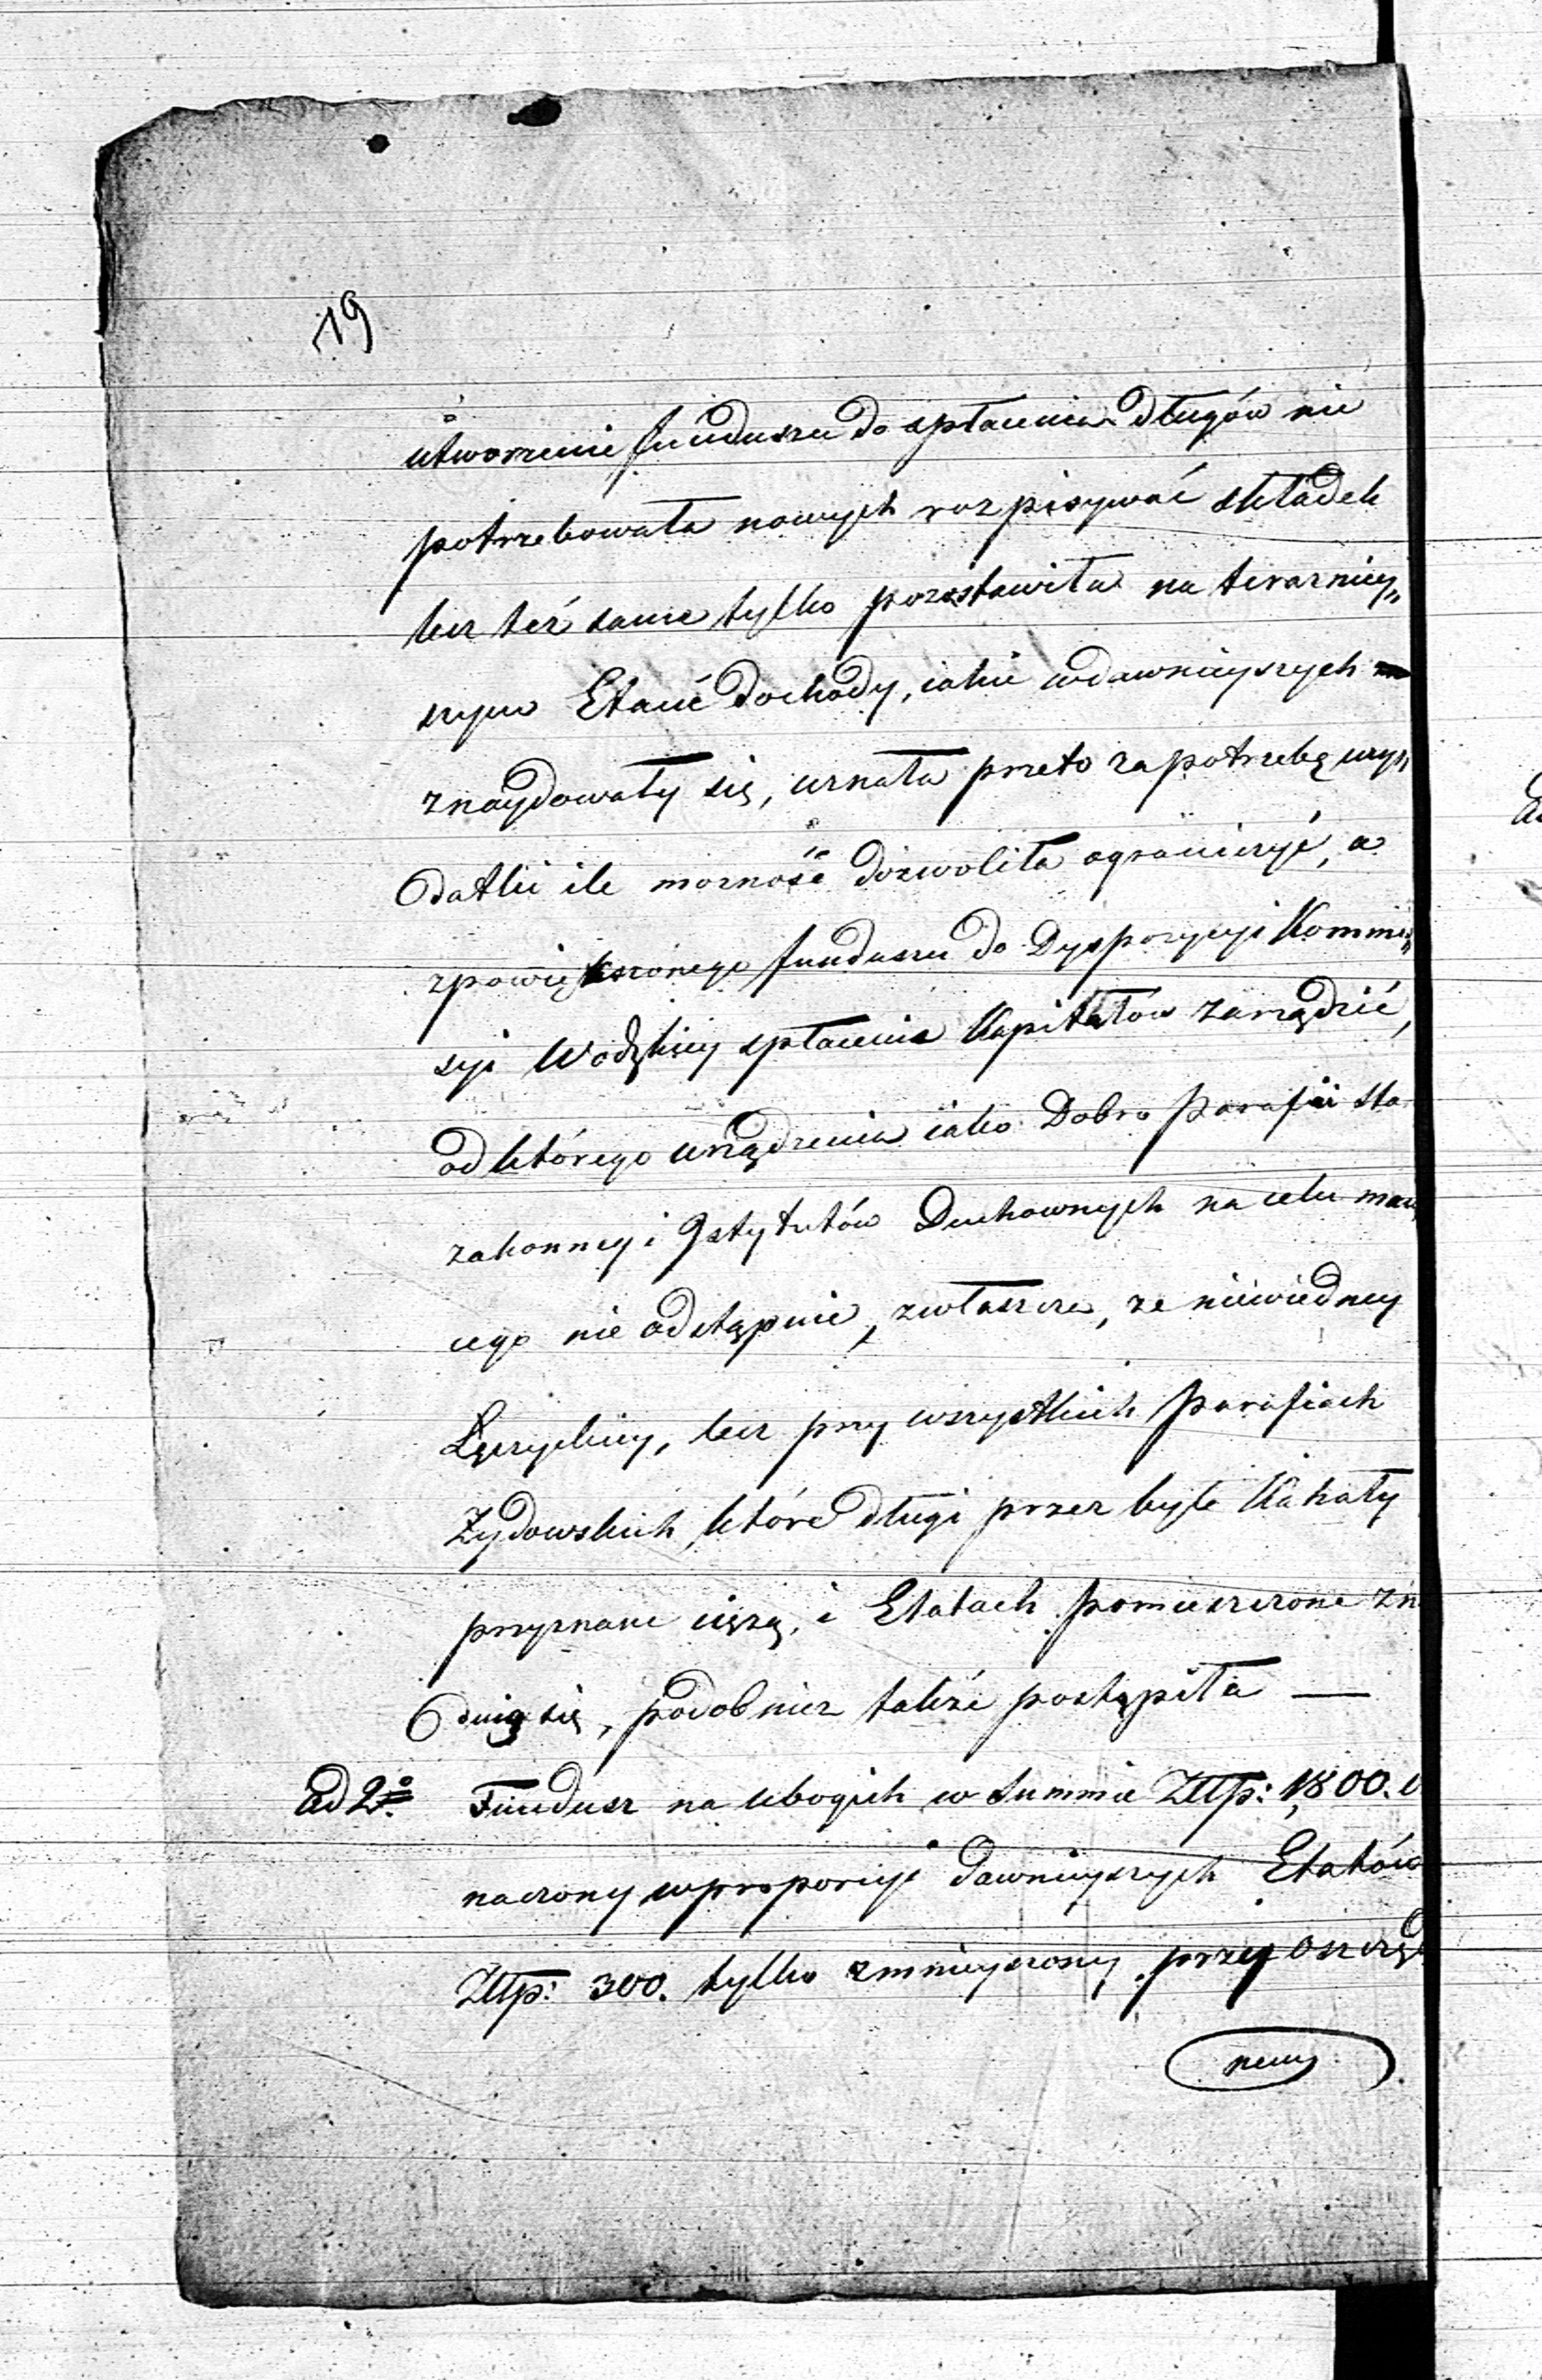 19
utworzenie funduszu do spłacenia długów nie
potrzebowała nowych rozpisywać składek
lecz też same tylko pozostawiła na teraźniey„
szym Etacie dochody, iakie wdawnieyszych
znaydowały się, uznała przeto za potrzebę wy„
datki ile możność dozwoliła ograniczyć, a
zpowiększonego funduszu do Dyspozycyi Kommis„
syi Wodzkiey spłacenie Kapitałów zarządzić,
od którego urządzenia iako Dobro Parafii Sta
zakonney i Instytutów Duchownych na celu maią
cego nie odstąpnie, zwłaszcza, ze niewiedney
Łęczyckiey, lecz przy wszystkich Parafiach
Żydowskich, które długi przez byłe Kahały
przyznane ciężą, i Etatach pomieszczone zn
duią się, podobnież także postąpiła —
Ad 2do Fundusz na ubogich w Summie Złtp: 1,800.
naczony wproporcyi dawnieyszych Etatów
Złtp: 300. tylko zmnieyszony przy Oszczę